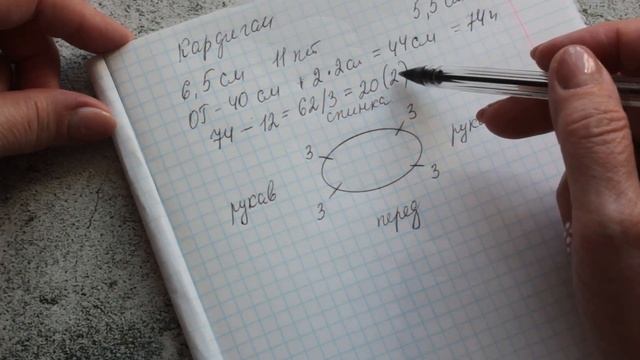 Кардиган
6,5 см 11 пет 5,5 см
ОГ - 40 см + 2·2см = 44см = 74п
74 - 12 = 62/3 = 20(2)
спинка
3 3
рукав
3 3
рукав перед